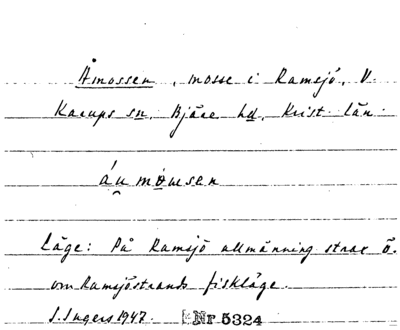 Åmossen, mosse i Ramsjö, V.
Karups sn, Bjäre hd, Krist. län.
áu mòusen
Läge: På Ramsjö allmänning strax ö.
om Ramsjöstrands fiskläge.
S. Ingers 1947. Nr 5324